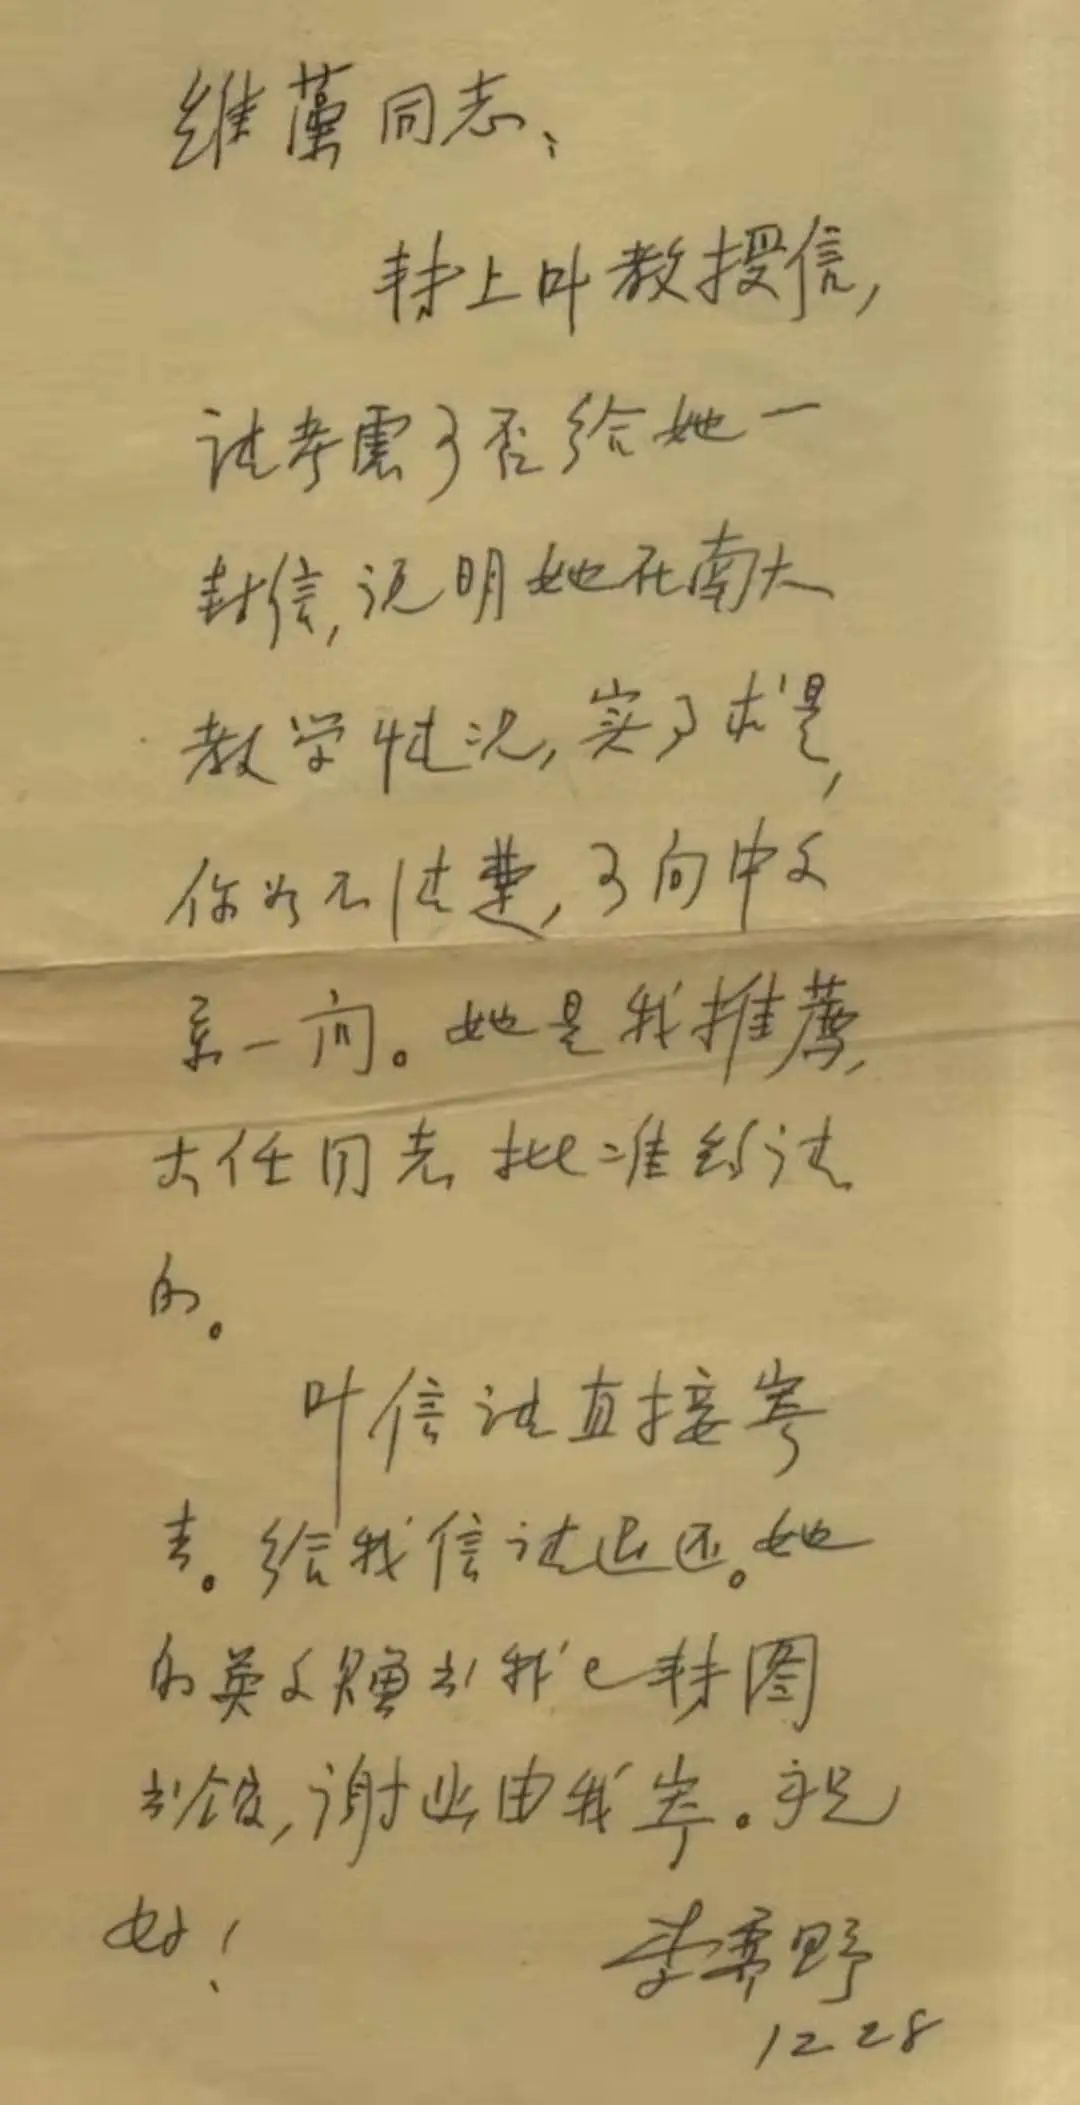 维藻同志:
转上叶教授信,
请考虑可否给她一
封信,说明她在南大
教学情况,实事求是,
你如不清楚,可向中文
系一问。她是我推荐,
大任同志批准约请
的。
叶信请直接寄
去。给我信请退还。她
的英文赠书我已转图
书馆,谢函由我寄。祝
好!
李霁野
12 28